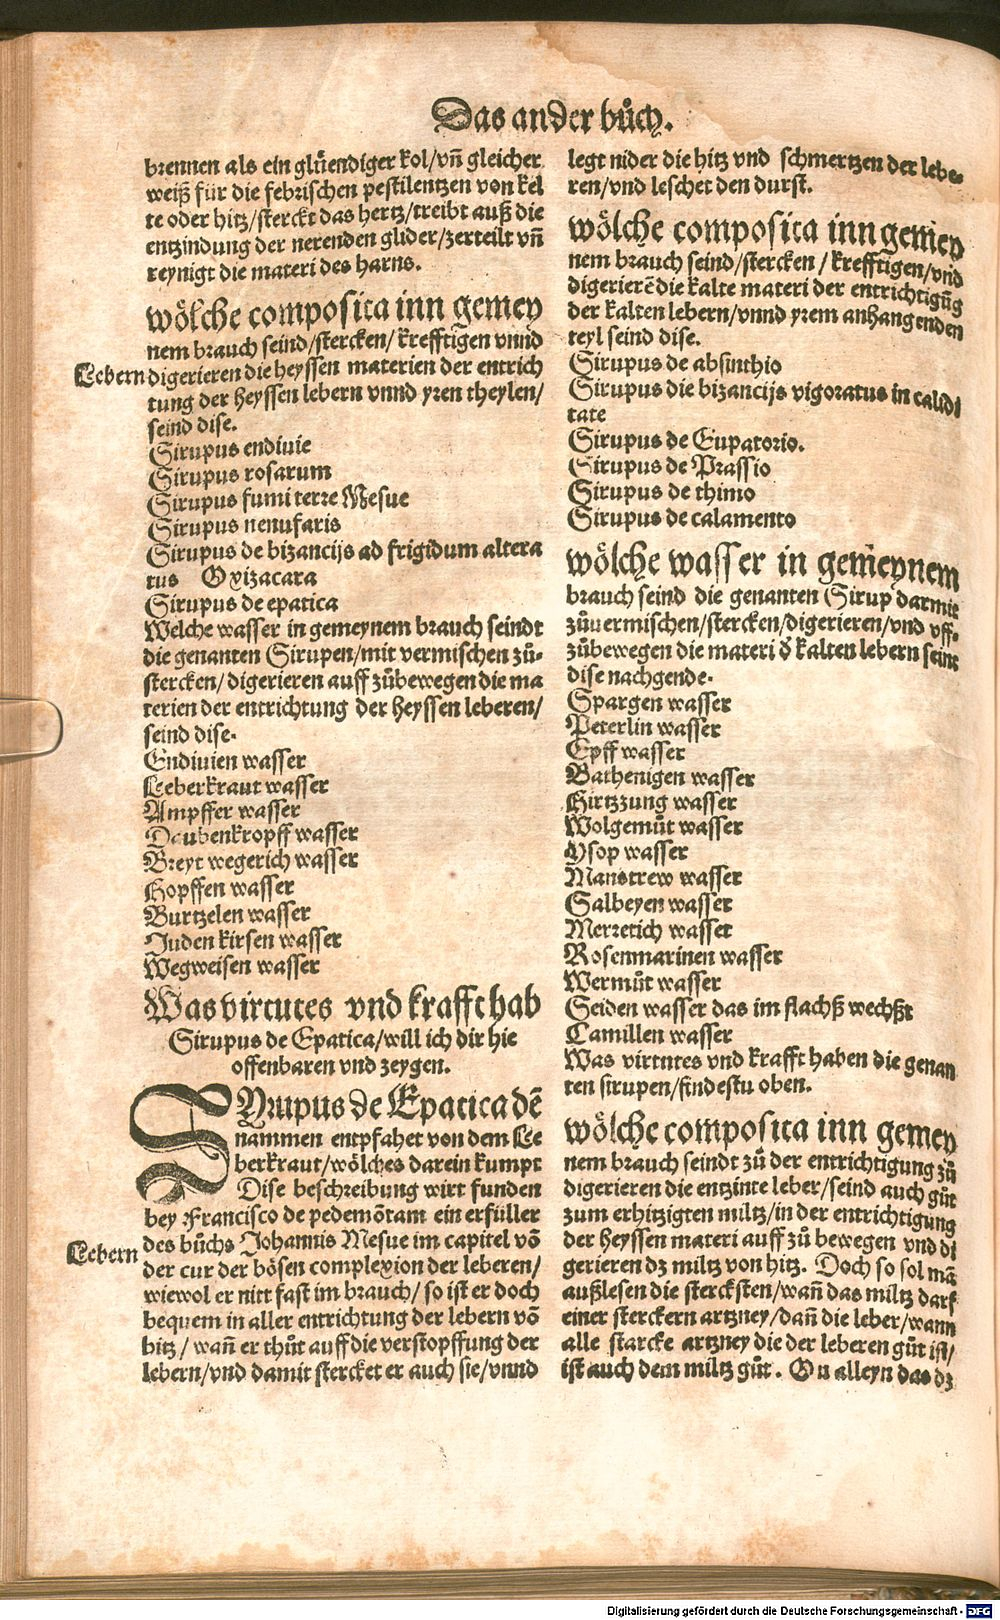 Das ander bůch.
brennen als ein glüendiger kol/vñ gleicher
weiß für die febrischen pestilentzen von kel
te oder hitz/sterckt das hertz/treibt auß die
entzindung der nerenden glider/zerteilt vñ
reynigt die materi des harns.
wölche composita inn gemey
nem brauch seind/stercken/krefftigen vnnd
Lebern
digerieren die heyssen materien der entrich
tung der heyssen lebern vnnd yren theylen/
seind dise.
Sirupus endiuie
Sirupus rosarum
Sirupus fumi terre Mesue
Sirupus nenufaris
Sirupus de bizancijs ad frigidum altera
tus Oxizacara
Sirupus de epatica
Welche wasser in gemeynem brauch seindt
die genanten Sirupen/mit vermischen zů-
stercken/digerieren auff zůbewegen die ma
terien der entrichtung der heyssen leberen/
seind dise.
Endiuien wasser
Leberkraut wasser
Ampffer wasser
Daubenkropff wasser
Breyt wegerich wasser
Hopffen wasser
Burtzelen wasser
Juden kirsen wasser
Wegweisen wasser
Was virtutes vnd krafft hab
Sirupus de Epatica/will ich dir hie
offenbaren vnd zeygen.
SYrupus de Epatica dē
nammen entpfahet von dem Le
berkraut/wölches darein kumpt
Dise beschreibung wirt funden
bey Francisco de pedemōtam ein erfüller
Lebern
des bůchs Johannis Mesue im capitel vō
der cur der bösen complexion der leberen/
wiewol er nitt fast im brauch/so ist er doch
bequem in aller entrichtung der lebern vō
hitz/wañ er thůt auff die verstopffung der
lebern/vnd damit stercket er auch sie/vnnd
legt nider die hitz vnd schmertzen der lebe-
ren/vnd leschet den durst.
wölche composita inn gemey
nem brauch seind/stercken/krefftigen/vnd
digerierē die kalte materi der entrichtigūg
der kalten lebern/vnnd yrem anhangenden
teyl seind dise.
Sirupus de absinthio
Sirupus die bizancijs vigoratus in calidi
tate
Sirupus de Eupatorio.
Sirupus de Prassio
Sirupus de thimo
Sirupus de calamento
wölche wasser in gemeynem
brauch seind die genanten Sirup darmit
zůuermischen/stercken/digerieren/vnd vff-
zůbewegen die materi d̕ kalten lebern seint
dise nachgende.
Spargen wasser
Peterlin wasser
Epff wasser
Bathenigen wasser
Hirtzzung wasser
Wolgemůt wasser
Ysop wasser
Manstrew wasser
Salbeyen wasser
Merretich wasser
Rosenmarinen wasser
Wermůt wasser
Seiden wasser das im flachß wechßt
Camillen wasser
Was virtutes vnd krafft haben die genan
ten sirupen/findestu oben.
wölche composita inn gemey
nem brauch seindt zů der entrichtigung zů
digerieren die entzinte leber/seind auch gůt
zum erhitzigten miltz/in der entrichtigung
der heyssen materi auff zů bewegen vnd di
gerieren dz miltz von hitz. Doch so sol mā
außlesen die stercksten/wañ das miltz darf
einer sterckern artzney/dañ die leber/wann
alle starcke artzney die der leberen gůt ist/
ist auch dem miltz gůt. On alleyn das dz
Digitalisierung gefördert durch die Deutsche Forschungsgemeinschaft - DFG